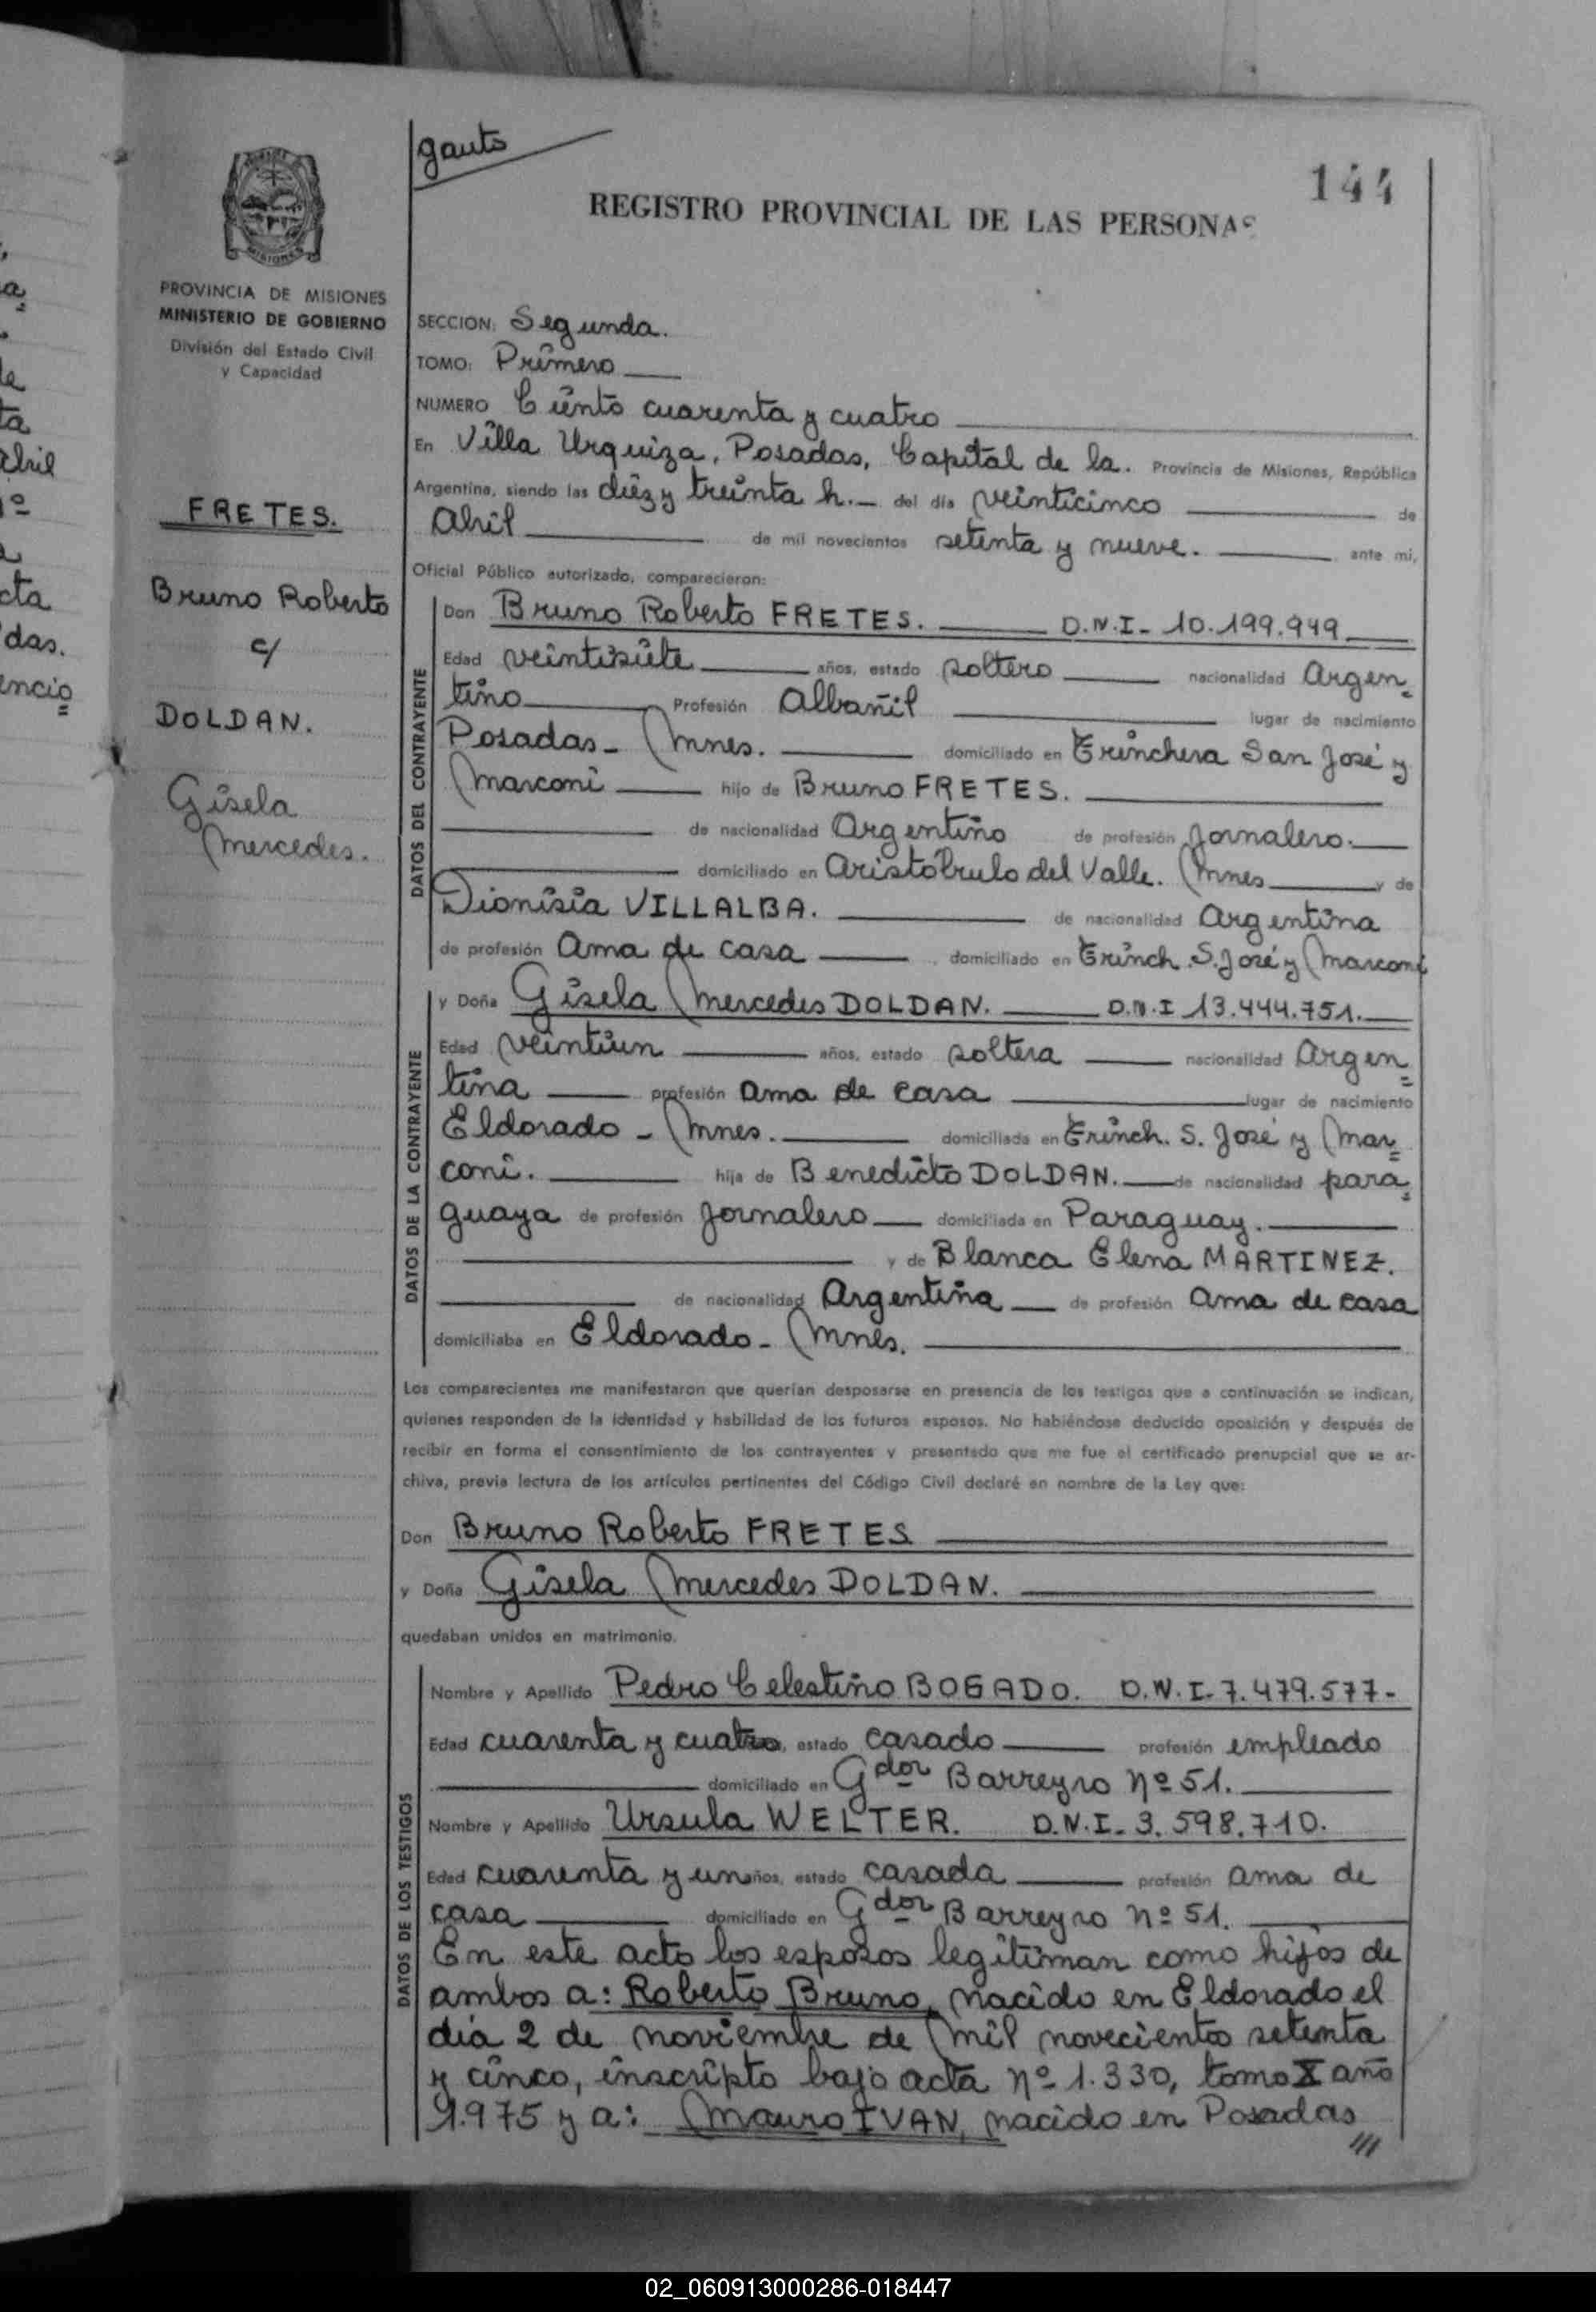 gauto
144
REGISTRO PROVINCIAL DE LAS PERSONAS
MISIONES
PROVINCIA DE MISIONES
MINISTERIO DE GOBIERNO
División del Estado Civil
y Capacidad
FRETES.
Bruno Roberto
c/
DOLDAN.
Gisela
Mercedes.
SECCION: Segunda.
TOMO: Primero
NUMERO Ciento cuarenta y cuatro
En Villa Urquiza, Posadas, Capital de la. Provincia de Misiones, República
Argentina, siendo las diez y treinta h. del día veinticinco de
Abril de mil novecientos setenta y nueve. ante mi,
Oficial Público autorizado, comparecieron:
DATOS DEL CONTRAYENTE
Don Bruno Roberto FRETES. D.N.I- 10.199.949
Edad veintisiete años, estado soltero nacionalidad Argen=
tino Profesión Albañil lugar de nacimiento
Posadas- Mnes. domiciliado en Trinchera San José y
Marconi hijo de Bruno FRETES.
de nacionalidad Argentino de profesión Jornalero.
domiciliado en Aristóbulo del Valle. Mnes y de
Dionisia VILLALBA. de nacionalidad Argentina
de profesión Ama de casa domiciliado en Trinch. S. José y Marconi
DATOS DE LA CONTRAYENTE
y Doña Gisela Mercedes DOLDAN. D.N.I 13.444.751.
Edad veintiun años, estado soltera nacionalidad Argen=
tina profesión Ama de casa lugar de nacimiento
Eldorado - Mnes. domiciliada en Trinch. S. José y Mar=
coni. hija de Benedicto DOLDAN. de nacionalidad para=
guaya de profesión Jornalero domiciliada en Paraguay.
y de Blanca Elena MARTINEZ.
de nacionalidad Argentina de profesión Ama de casa
domiciliaba en Eldorado- Mnes.
Los comparecientes me manifestaron que querían desposarse en presencia de los testigos que a continuación se indican,
quienes responden de la identidad y habilidad de los futuros esposos. No habiéndose deducido oposición y después de
recibir en forma el consentimiento de los contrayentes y presentado que me fue el certificado prenupcial que se ar-
chiva, previa lectura de los artículos pertinentes del Código Civil declaré en nombre de la Ley que:
Don Bruno Roberto FRETES
y Doña Gisela Mercedes DOLDAN.
quedaban unidos en matrimonio.
DATOS DE LOS TESTIGOS
Nombre y Apellido Pedro Celestino BOGADO. D.N.I-7.479.577-
Edad cuarenta y cuatro, estado casado profesión empleado
domiciliado en Gdor Barreyro nº 51.
Nombre y Apellido Ursula WELTER. D.N.I- 3.598.710.
Edad cuarenta y un años, estado casada profesión ama de
casa domiciliado en Gdor Barreyro nº 51.
En este acto los esposos legitiman como hijos de
ambos a: Roberto Bruno, nacido en Eldorado el
día 2 de noviembre de mil novecientos setenta
y cinco, inscripto bajo acta nº 1.330, tomo X año
1.975 y a: Mauro IVAN, nacido en Posadas
///
02_060913000286-018447